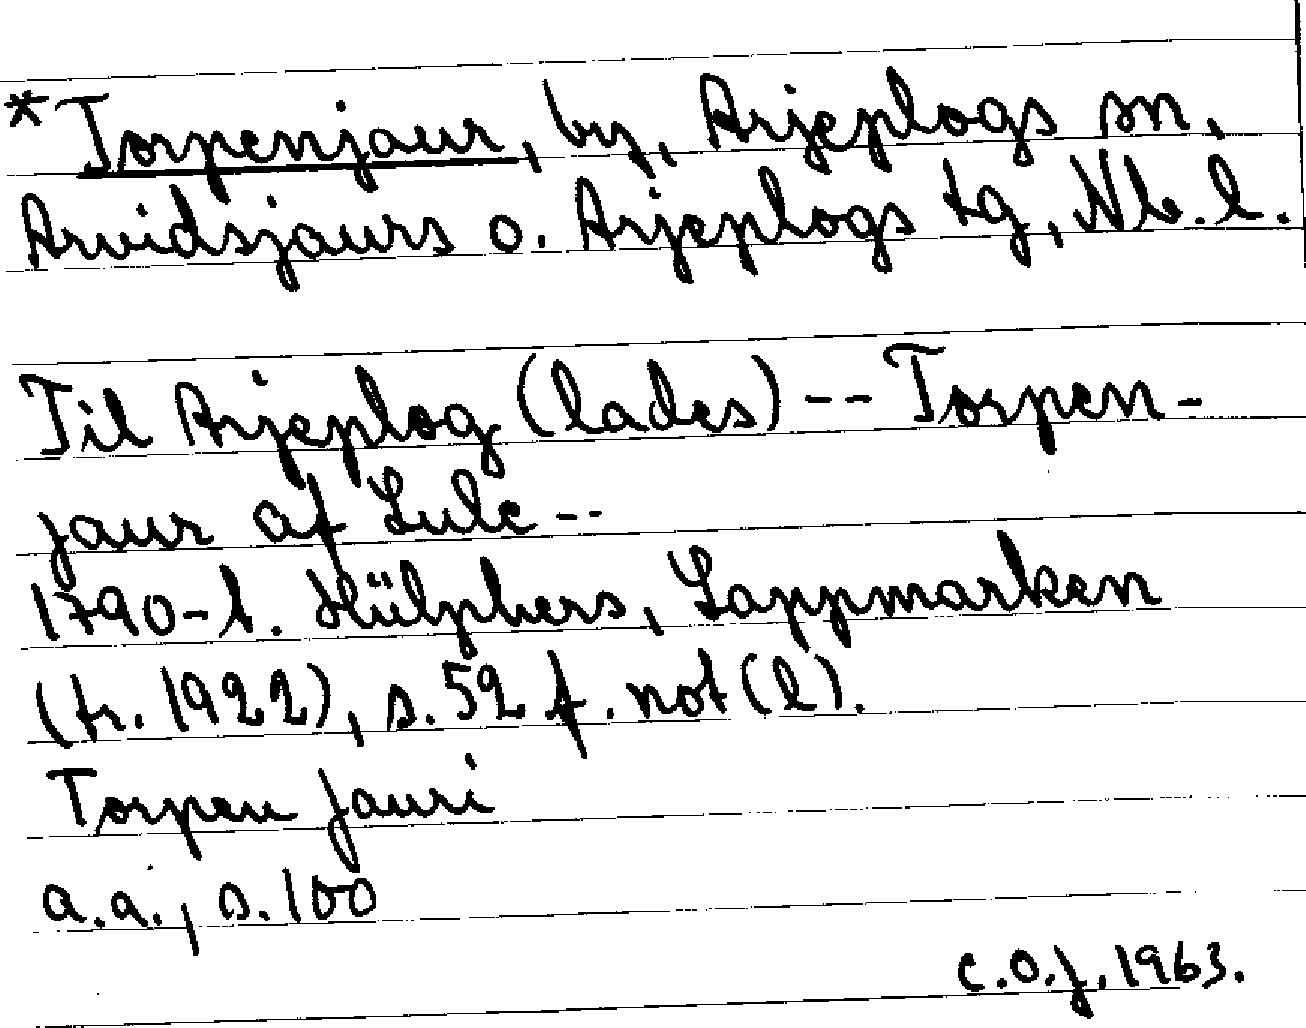 * Torpenjaur, by, Arjeplogs sn,
Arvidsjaurs o. Arjeplogs tg, Nb. l.
Til Arjeplog (lades) -- Torpen-
jaur af Lule --
1790-t. Hülphers, Lappmarken
(tr. 1922), s. 52 f. not (l).
Torpen jauri
a.a., s. 100
C.O.J. 1963.